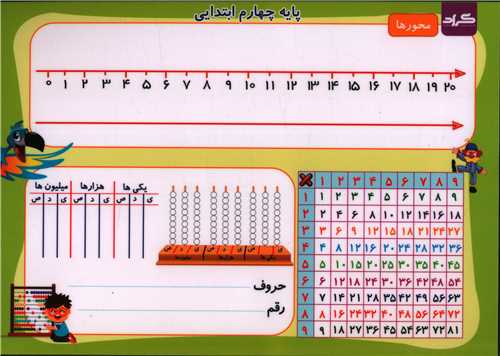 پایه چهارم ابتدایی
گراد
محورها
۰ ۱ ۲ ۳ ۴ ۵ ۶ ۷ ۸ ۹ ۱۰ ۱۱ ۱۲ ۱۳ ۱۴ ۱۵ ۱۶ ۱۷ ۱۸ ۱۹ ۲۰
یکی ها هزارها میلیون ها
ی د ص ی د ص ی د ص
حروف
رقم
× ۱ ۲ ۳ ۴ ۵ ۶ ۷ ۸ ۹
۱ ۱ ۲ ۳ ۴ ۵ ۶ ۷ ۸ ۹
۲ ۲ ۴ ۶ ۸ ۱۰ ۱۲ ۱۴ ۱۶ ۱۸
۳ ۳ ۶ ۹ ۱۲ ۱۵ ۱۸ ۲۱ ۲۴ ۲۷
۴ ۴ ۸ ۱۲ ۱۶ ۲۰ ۲۴ ۲۸ ۳۲ ۳۶
۵ ۵ ۱۰ ۱۵ ۲۰ ۲۵ ۳۰ ۳۵ ۴۰ ۴۵
۶ ۶ ۱۲ ۱۸ ۲۴ ۳۰ ۳۶ ۴۲ ۴۸ ۵۴
۷ ۷ ۱۴ ۲۱ ۲۸ ۳۵ ۴۲ ۴۹ ۵۶ ۶۳
۸ ۸ ۱۶ ۲۴ ۳۲ ۴۰ ۴۸ ۵۶ ۶۴ ۷۲
۹ ۹ ۱۸ ۲۷ ۳۶ ۴۵ ۵۴ ۶۳ ۷۲ ۸۱